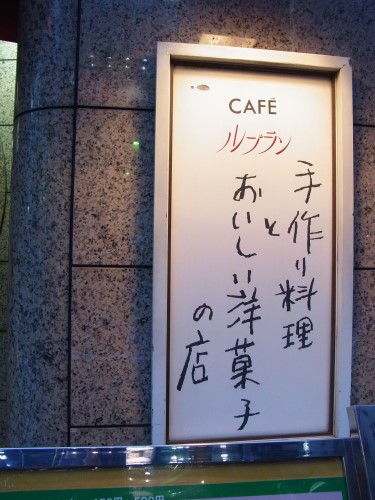 CAFÉ
ルブラン
手作り料理
と
おいしい洋菓子
の店